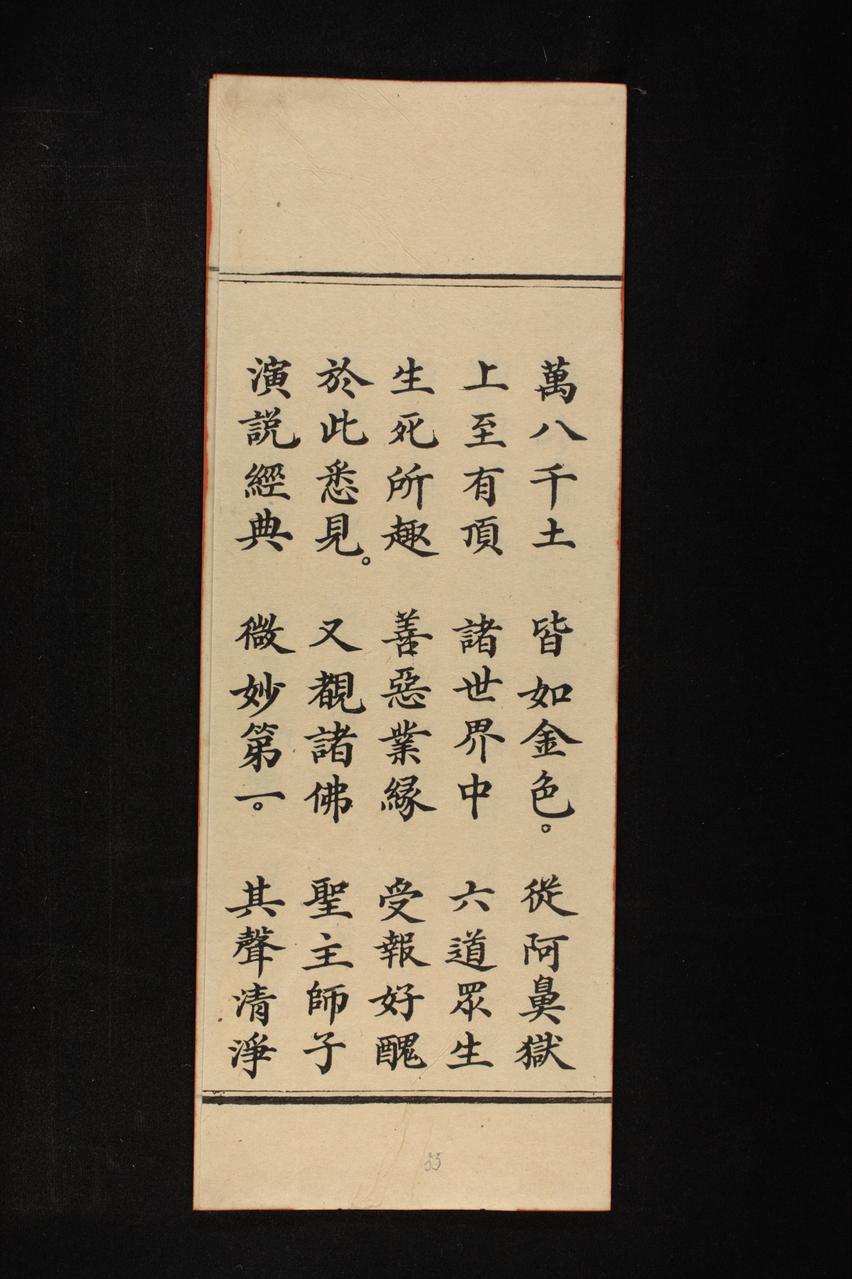 萬八千土 皆如金色。 從阿鼻獄
上至有頂 諸世界中 六道眾生
生死所趣 善惡業緣 受報好醜
於此悉見。 又覩諸佛 聖主師子
演説經典 微妙第一。 其聲清淨
35